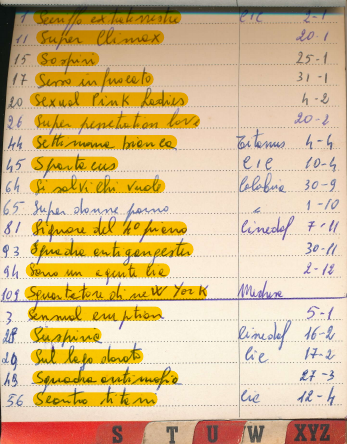 1 Senso extraterrestre CIC 2-1
11 Super Climax 20-1
15 Sospiri 25-1
17 Sesso infuocato 31-1
20 Sexual Pink Ladies 4-2
26 Super penetration love 20-2
44 Settimana bianca Titanus 4-4
45 Spartacus CIC 10-4
64 Si salvi chi vuole Calabria 30-9
65 Super donne porno " 1-10
81 Signore del 4º piano Cinedaf 7-11
93 Squadra antigangster 30-11
94 Sono un agente Cia 2-12
109 Squartatore di new York Medusa
3 Sensual eruption 5-1
28 Suspiria Cinedaf 16-2
29 Sul lago dorato Cic 17-2
49 Squadra antimafia 27-3
56 Scontro titani Cic 12-4
S T U W XYZ